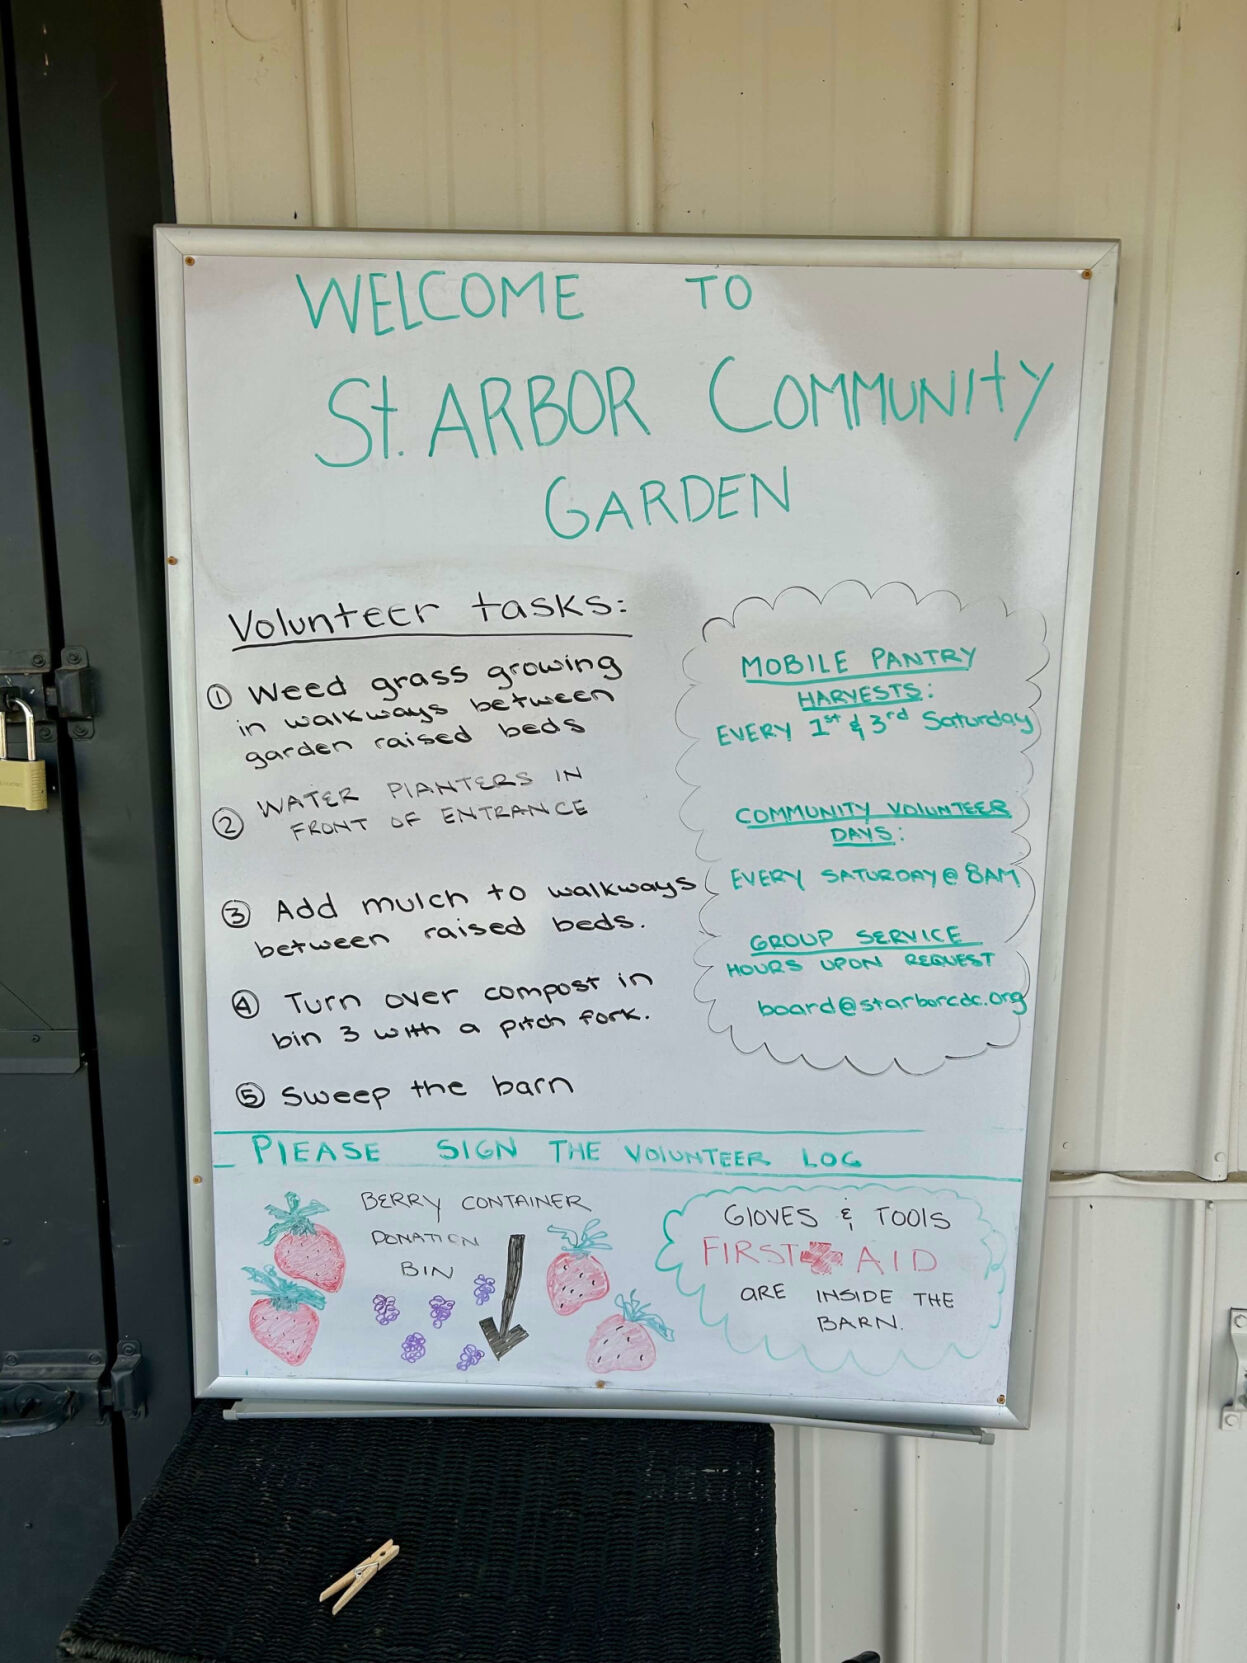 WELCOME TO
St. ARBOR COMMUNITY
GARDEN
Volunteer tasks:
① Weed grass growing
in walkways between
garden raised beds
② WATER PLANTERS IN
FRONT OF ENTRANCE
③ Add mulch to walkways
between raised beds.
④ Turn over compost in
bin 3 with a pitch fork.
⑤ Sweep the barn
MOBILE PANTRY
HARVESTS:
EVERY 1st & 3rd Saturday
COMMUNITY VOLUNTEER
DAYS:
EVERY SATURDAY @ 8AM
GROUP SERVICE
HOURS UPON REQUEST
board@starborcdc.org
PLEASE SIGN THE VOLUNTEER LOG
BERRY CONTAINER
DONATION
BIN
GLOVES & TOOLS
FIRST AID
ARE INSIDE THE
BARN.